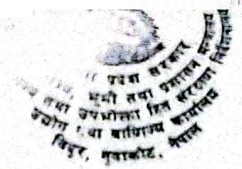 प्रदेश सरकार
भूमि तथा प्रशासन मन्त्रालय
तथा उपभोक्ता हित संरक्षण निर्देशनालय
उद्योग तथा वाणिज्य कार्यालय
विदुर, नुवाकोट, नेपाल